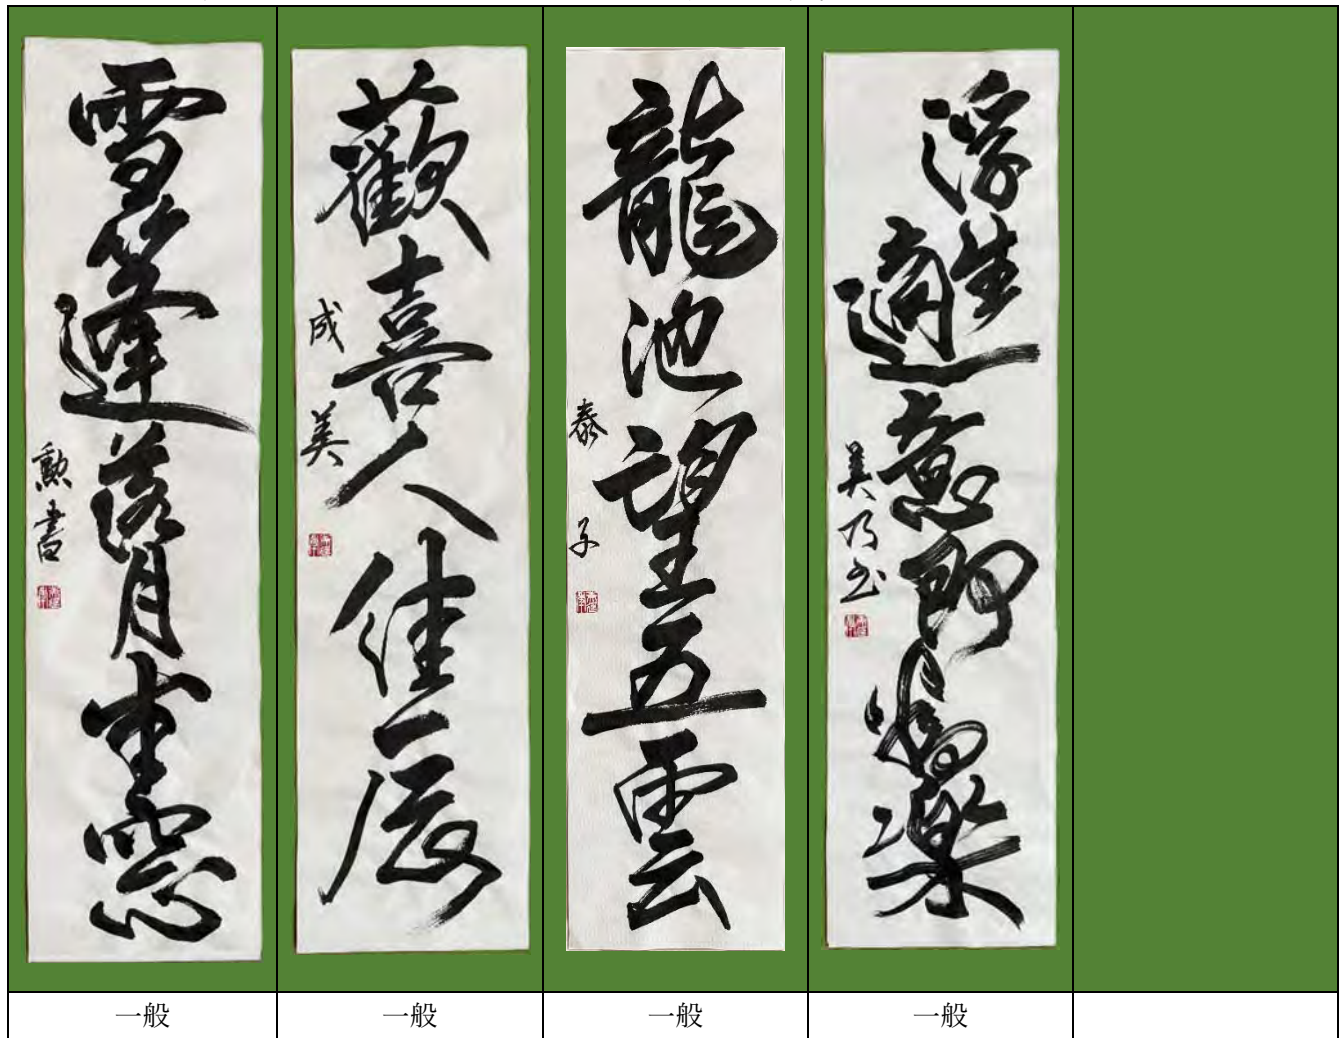 雪篷落月窓
勲書
歡喜人佳辰
成美
龍池望五雲
泰子
浮生適意即為樂
美乃書
一般
一般
一般
一般